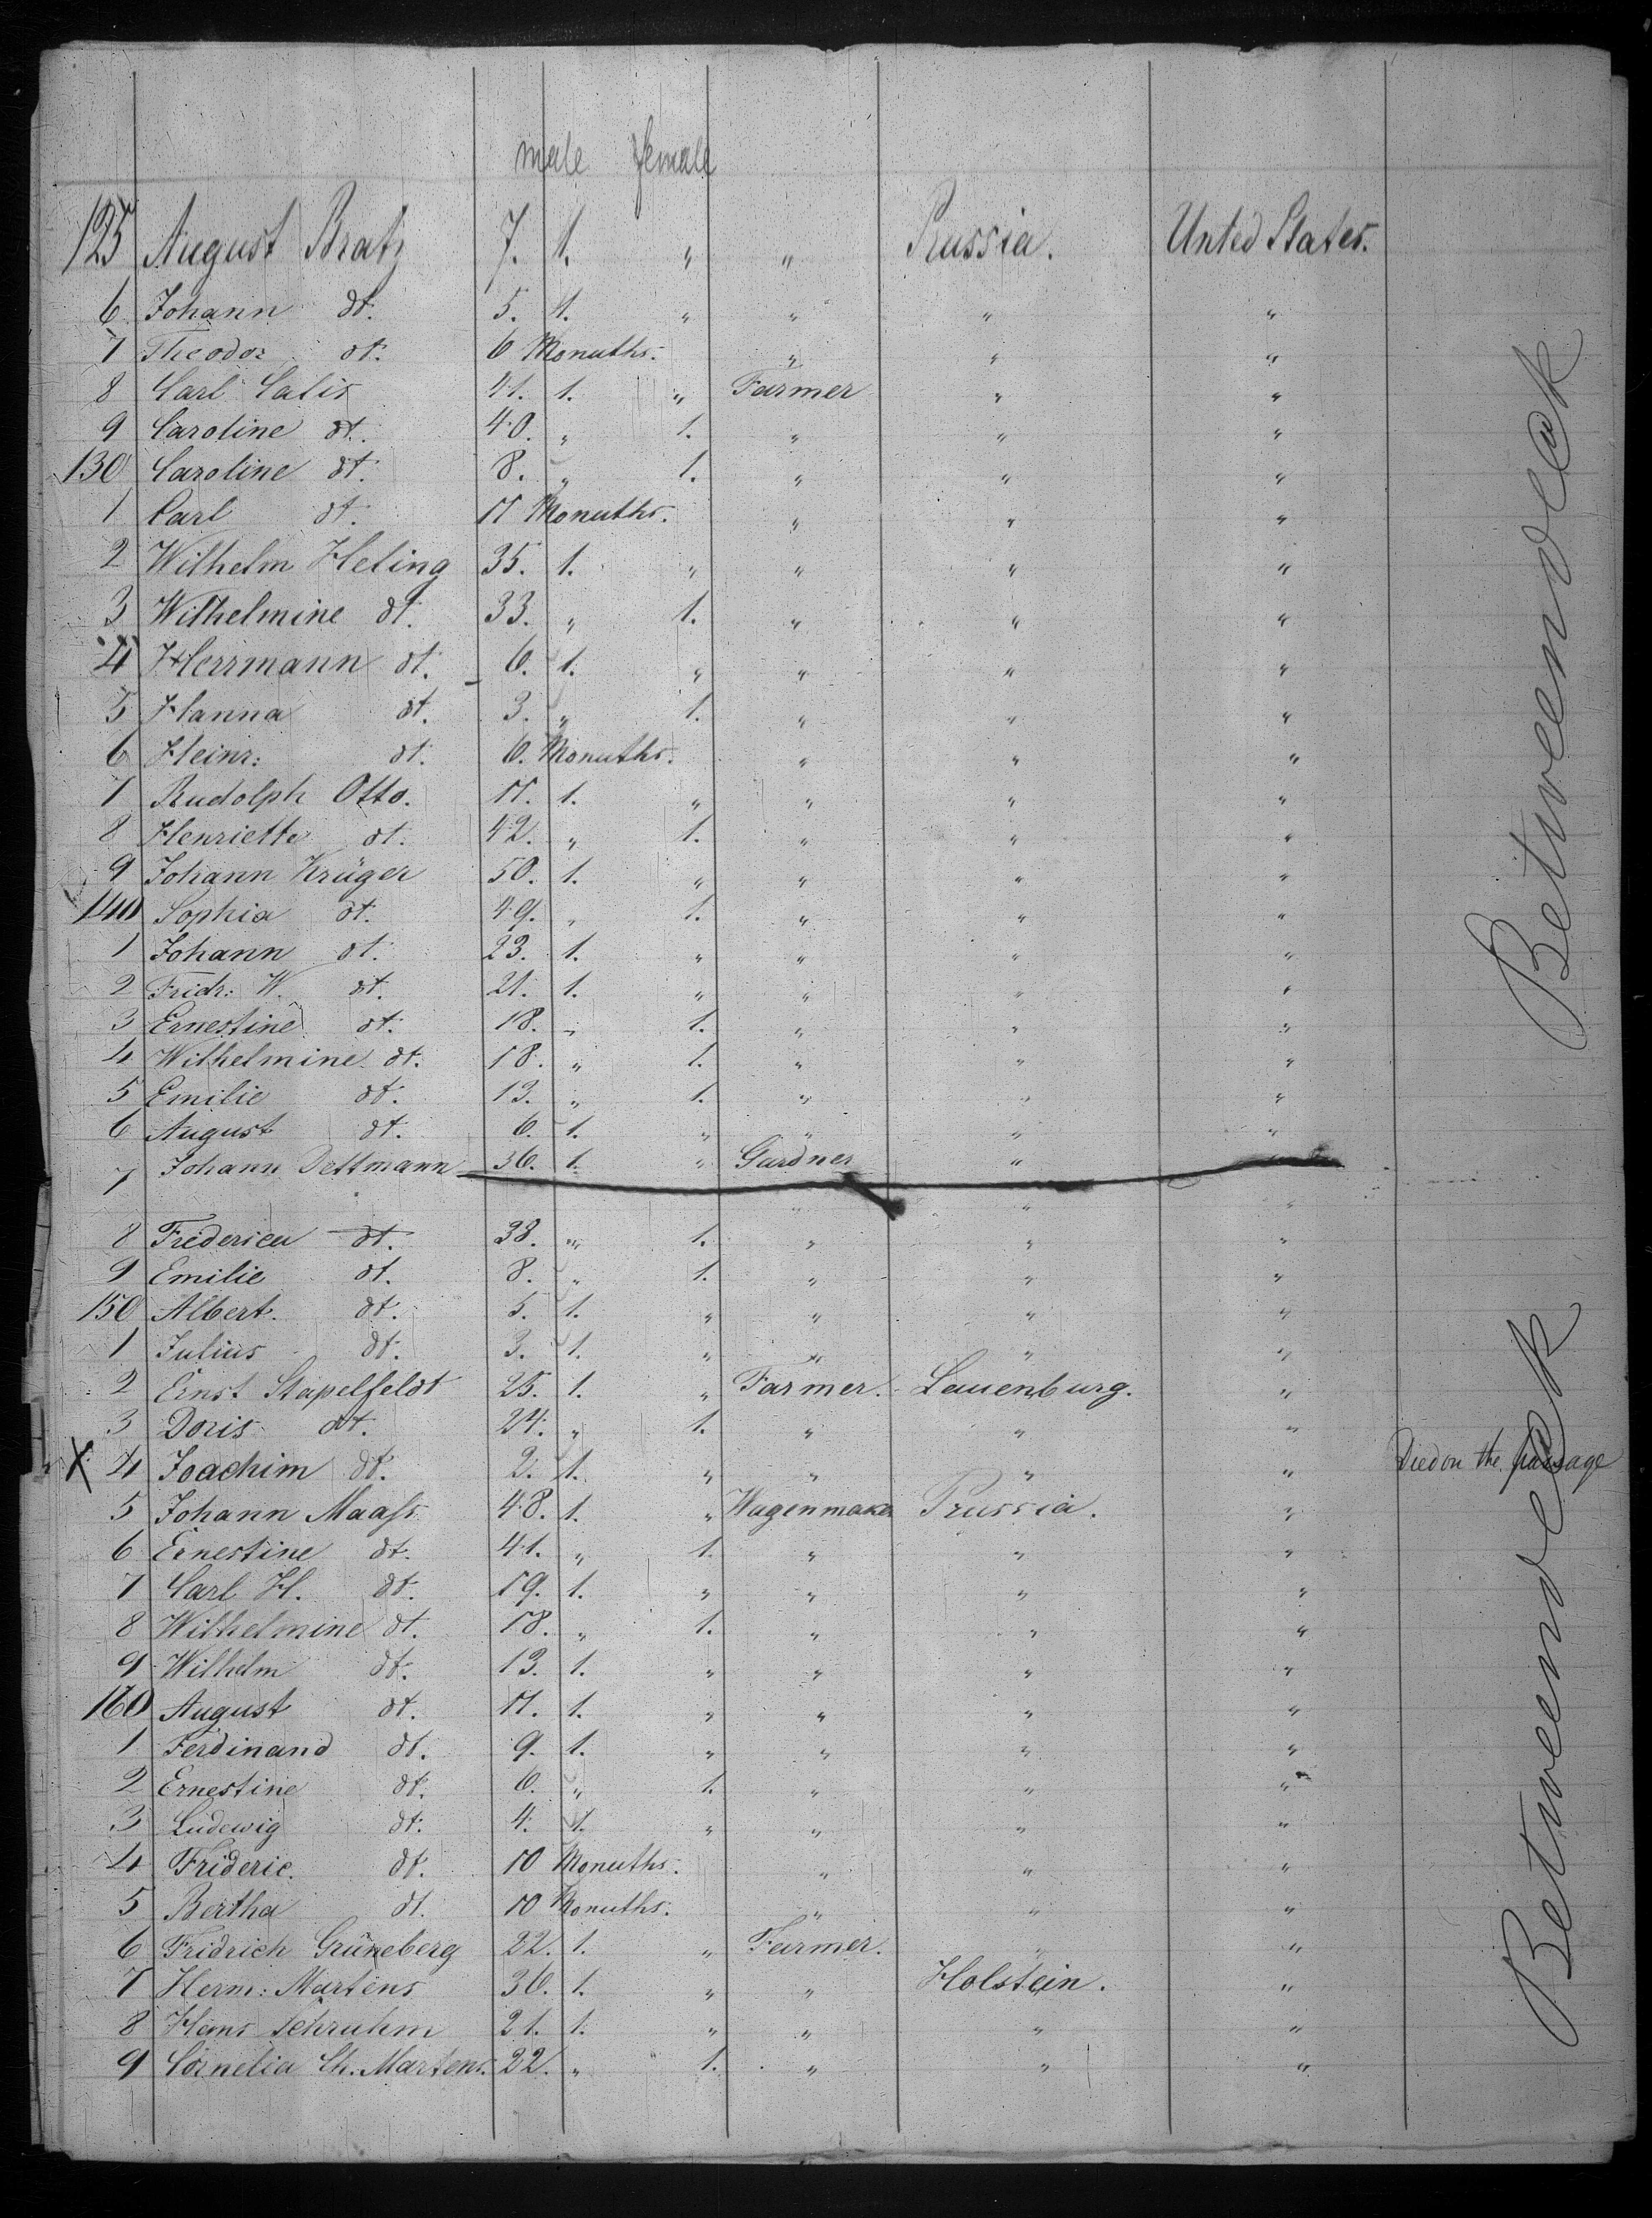 male female
125 August Bratz 7. 1. " " Prussia. Unted States.
6 Johann dt. 5. 1. " " " "
7 Theodor dt. 6 Monuths. " " "
8 Carl Calis 41. 1. " Farmer " "
9 Caroline dt. 40. " 1. " " "
130 Caroline dt. 8. " 1. " " "
1 Carl dt. 11 Monuths. " " "
2 Wilhelm Heling 35. 1. " " " "
3 Wilhelmine dt. 33. " 1. " " "
4 Herrmann dt. 6. 1. " " " "
5 Hanna dt. 3. " 1. " " "
6 Heinr: dt. 6. Monuths. " " "
7 Rudolph Otto. 11. 1. " " " "
8 Henriette dt. 42. " 1. " " "
9 Johann Krüger 50. 1. " " " "
140 Sophia dt. 49. " 1. " " "
1 Johann dt. 23. 1. " " " "
2 Fridr: W. dt. 21. 1. " " " "
3 Ernestine dt. 18. " 1. " " "
4 Wilhelmine dt. 18. " 1. " " "
5 Emilie dt. 13. " 1. " " "
6 August dt. 6. 1. " " " "
7 Johann Dettmann 36. 1. " Gardner " "
" " "
8 Fredericu dt. 38. " 1. " " "
9 Emilie dt. 8. " 1. " " "
150 Albert. dt. 5. 1. " " " "
1 Julius dt. 3. 1. " " " "
2 Ernst Stapelfeldt 25. 1. " Farmer. Lauenburg. "
3 Doris dt. 24. " 1. " " "
X 4 Joachim dt. 2. 1. " " " " Died on the passage
5 Johann Maaſs 48. 1. " Wagenmaker Prussia. "
6 Ernestine dt. 41. " 1. " " "
7 Carl H. dt. 19. 1. " " " "
8 Wilhelmine dt. 18. " 1. " " "
9 Wilhelm dt. 13. 1. " " " "
160 August dt. 11. 1. " " " "
1 Ferdinand dt. 9. 1. " " " "
2 Ernestine dt. 6. " 1. " " "
3 Ludewig dt. 4. 1. " " " "
4 Frideric. dt. 10 Monuths. " " "
5 Bertha dt. 10 Monuths. " " "
6 Fridrich Grüneberg 22. 1. " Farmer. " "
7 Herm: Martens 36. 1. " " Holstein. "
8 Hans Schruhm 21. 1. " " " "
9 Cornelia Ch. Martens. 22. " 1. " " "
Betweendeck
Betweendeck